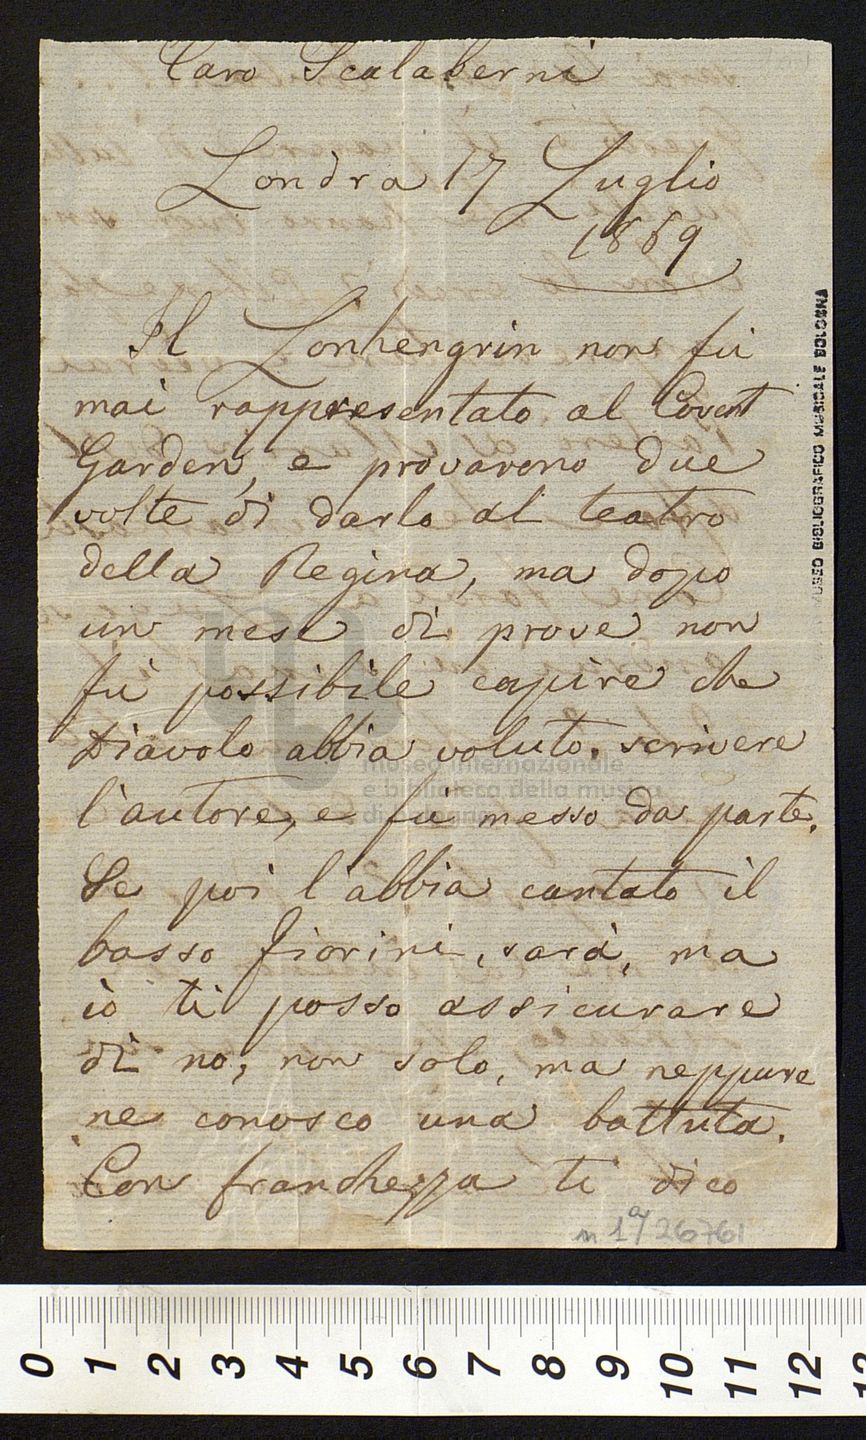 Caro Scalaberni
Londra 17 Luglio
1869
Il Lonhengrin non fu
mai rappresentato al Covent
Garden, e provarono due
volte di darlo al teatro
della Regina, ma dopo
un mese di prove non
fù possibile capire che
Diavolo abbia voluto scrivere
l'autore, e fù messo da parte.
Se poi l'abbia cantato il
basso Fiorini, sarà, ma
io ti posso assicurare
di no, non solo, ma neppure
ne conosco una battuta.
Con franchezza ti dico
n 1a/26761
MUSEO BIBLIOGRAFICO MUSICALE BOLOGNA
museo internazionale
e biblioteca della musica
di bologna
0 1 2 3 4 5 6 7 8 9 10 11 12